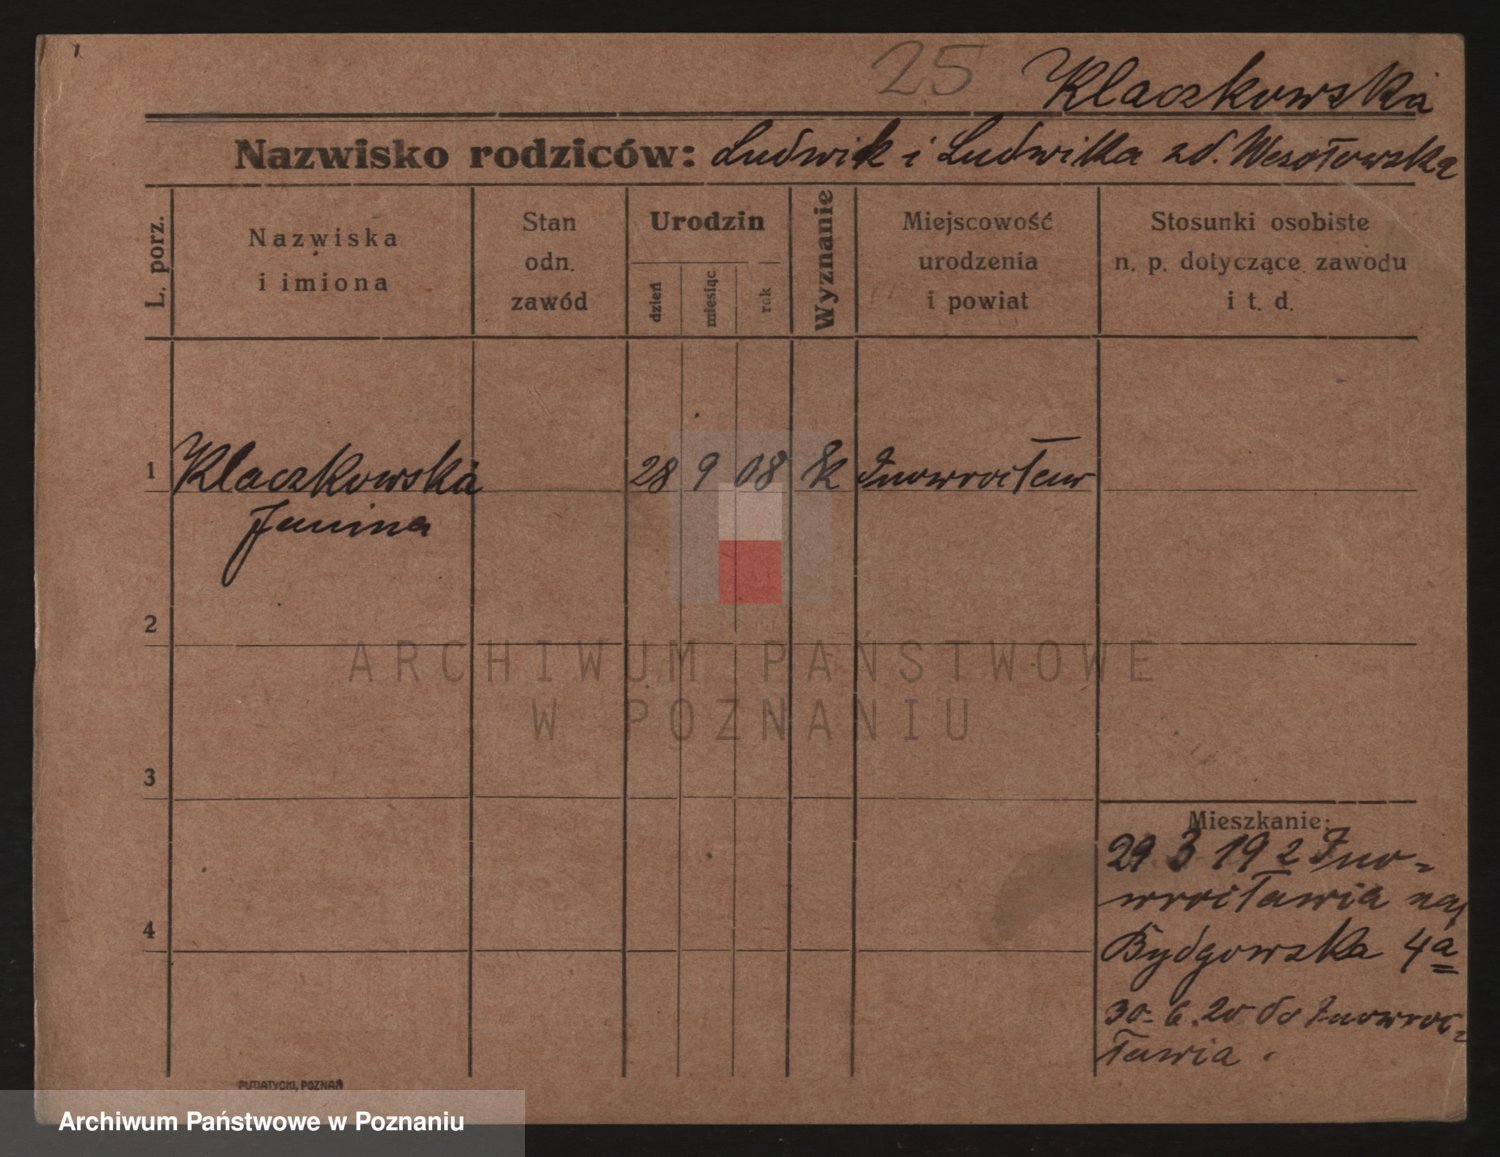 25 Klaczkowska
Nazwisko rodziców: Ludwik i Ludwika zd. Wesołowska
L. porz.
Nazwiska
i imiona
Stan
odn.
zawód
Urodzin
dzień
miesiąc
rok
Wyznanie
Miejscowość
urodzenia
i powiat
Stosunki osobiste
n. p. dotyczące zawodu
i t. d.
1 Klaczkowska 28 9 08 k Inowrocław
Janina
2
ARCHIWUM PAŃSTWOWE
W POZNANIU
3
Mieszkanie:
29 3 19 z Ino-
wrocławia na
4
Bydgowska 4a
30. 6. 20 do Inowroc-
ławia.
PUTIATYCKI, POZNAŃ
Archiwum Państwowe w Poznaniu